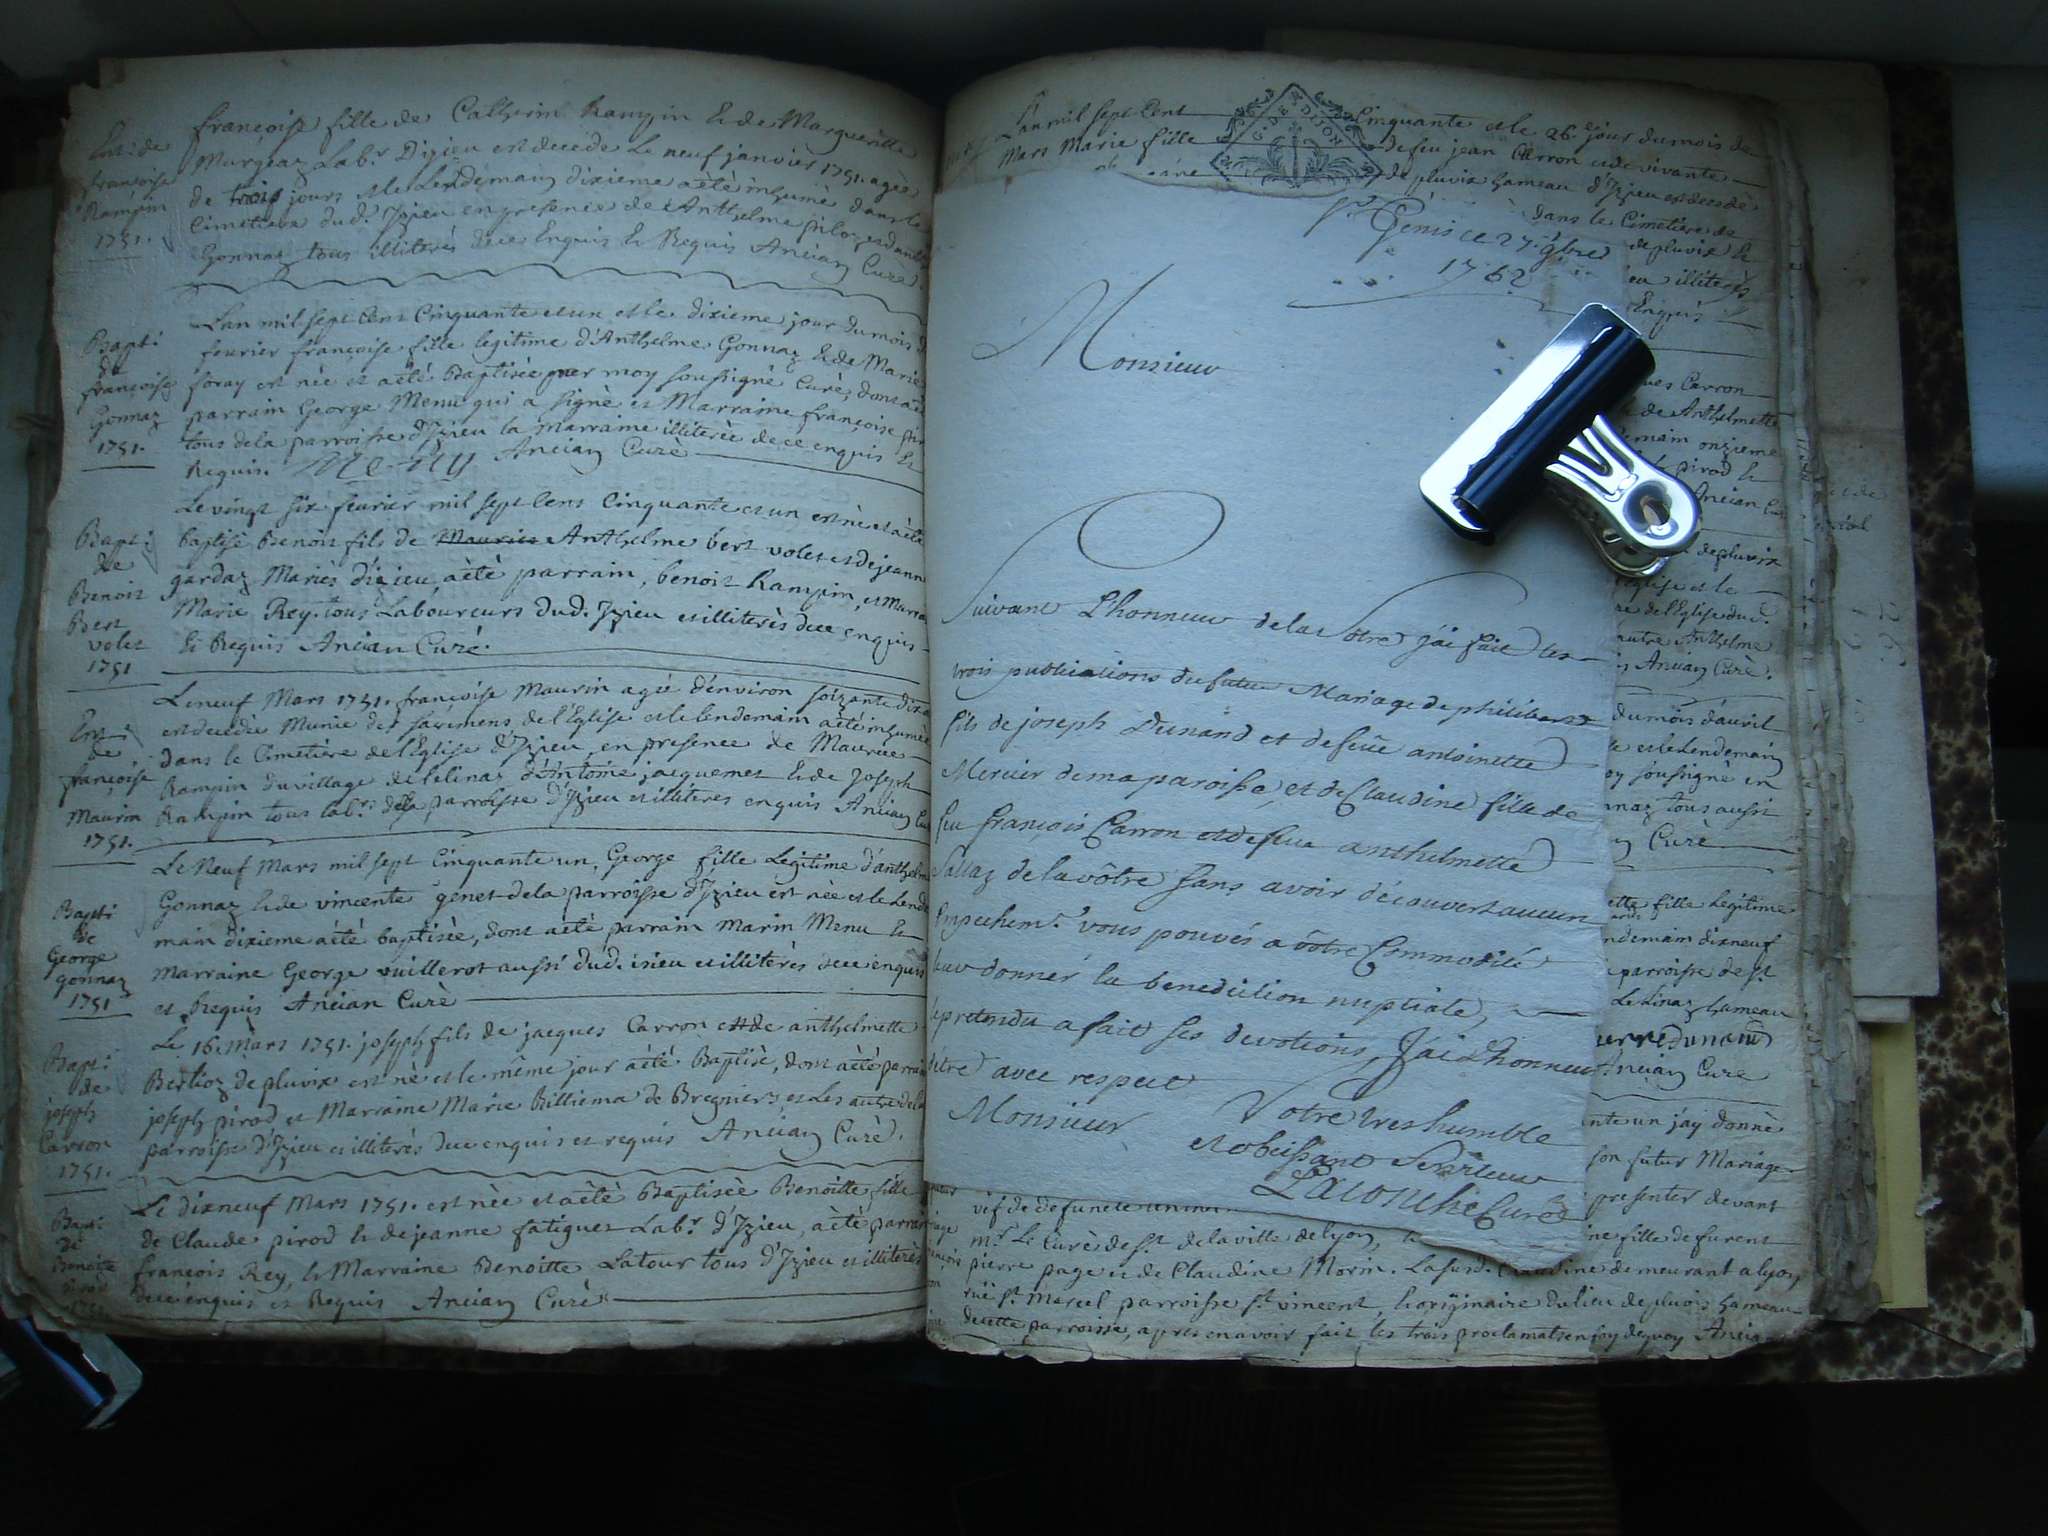 françoise fille de Catherin Rampin & de Margueritte
Ent: de
françoise
Rampin
1751.
Murgeaz Lab.r Dizieu est decede Le neuf janvier 1751. agée
de trois jours et le Lendemain dixieme a èté inhumé dans le
Cimetiere dud. Izieu en presence de Anthelme piloz et danth
Gonnaz tous illiterés de ce Enquis & Requis Ancian Curé.
Bapti
de
françoise
Gonnaz
1751.
Lan mil sept Cent Cinquante et un et le dixieme jour du mois d
feurier françoise fille legitime d'Anthelme Gonnaz & de Marie
foray est née et a èté Baptisée par moy soussignè Curé, dont a èt
parrain George Menu qui a signè et Marraine françoise
tous de la parroisse d'Izieu la marraine illiterèe de ce enquis &
Requis. Menu Ancian Curè
Bapt:
de
Benoit
Bert
volet
1751
Le vingt six feurier mil sept Cent Cinquante et un est nè et a èté
baptisé Benoit fils de Maurice Anthelme bert volet et de jeanne
gardaz Mariès dizieu a èté parrain, benoit Rampin, et Marra
Marie Rey. tous Laboureurs dud. Izieu et illiterès de ce enquis
& Requis Ancian Curé.
Ent
de
françoise
Maurin
1751.
Le neuf Mars 1751. françoise Maurin agée d'environ soixante dix a
est decedée Munie des sacremens de l'Eglise et le lendemain a èté inhumée
dans le Cimetiere de l'Eglise d'Izieu, en presence de Maurice
Rampin du village de lelinaz d'Antoine jacquemet & de Joseph
Rampin tous lab.rs de la parroisse d'Izieu et illiteres enquis Ancian Cur
Bapti
de
George
gonnaz
1751
Le Neuf Mars mil sept Cinquante un, George fille Legitime d'anthelm
Gonnaz & de vincente genet de la parroisse d'Izieu est née et le Lende
main dixieme a èté baptisèe, dont a èté parrain Marin Menu &
marraine George vuillerot aussi dud. isieu et illiterès de ce enquis
et Requis Ancian Curè
Bapti
de
joseph
Carron
1751.
Le 16. Mars 1751. joseph fils de jacques Carron et de anthelmette
Berlioz de pluvix est nè et le même jour a èté Baptisè, dont a èté parrain
joseph pirod et Marraine Marie Billiema de Bregnier et Les autre de la
parroisse d'Izieu et illiterés de ce enquis et requis Ancian Curè.
Bapti
de
Benoite
Pirod
1751
Le dixneuf Mars 1751. est née et a èté Baptisèe Benoitte fille
de Claude pirod & de jeanne fatiguet Lab.r d'Izieu, a èté parrain
françois Rey, & Marraine Benoitte Latour tous d'Izieu et illiterès
de ce enquis et Requis Ancian Curè
Lan mil sept Cent Cinquante et le 26.e jour du mois de
G. DE DIJON
Mars Marie fille de feu jean Carron et de vivante
de pluvix hameau d'Izieu est decede
dans le Cimetiere de
de pluvix &
illiterés
Enquis
S.t Genis ce 27. 9bre
1762
Monsieur
Suivant L'honneur de la Votre j'ai fait les
trois publications du futur Mariage de philibert
fils de joseph Dunand et de feüe antoinette
Mercier de ma paroisse, et de Claudine fille de
feu françois Carron et de feue anthelmette
Sallaz de la vôtre sans avoir découvert aucun
Empechem.t vous pouvés a vôtre Commodité
leur donner la benediction nuptiale,
le pretendu a fait ses devotions, J'ai L'honneur
d'être avec respect
Monsieur Votre tres humble
et obeissant Serviteur
Lacouche Curé
ues Carron
de Anthelmette
main onzieme
pirod &
Ancian Cu
de pluvix
l'eglise et le
de l'Eglise dud.
autre Anthelme
Ancian Curè.
du mois d'avril
et le Lendemain
soussignè en
nnaz tous aussi
Curè
ette fille Legitime
ndemain dixneuf
parroisse de S.t
Lelinaz hameau
Ancian Cure
nte un jay donnè
son futur Mariage
presenter devant
vif de defuncte
m.r Le Curé de S.t de la ville de lyon, ine fille de furent
pierre page et de Claudine Morin. La susd. Claudine demeurant a lyon
rüe S.t Marcel parroisse S.t vincent, & originaire du lieu de pluvis hameau
de cette parroisse, apres en avoir fait les trois proclamats en foy de quoy Ancian